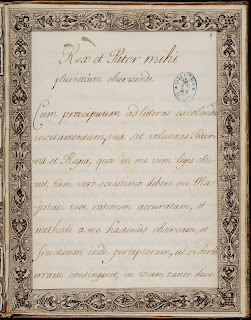 Rex et Pater mihi
plurimum observande
Cum præcipuum ad litteras excolendas
incitamentum, tua sit voluntas Pater-
na et Regia, quæ in me vim legis obti-
net, tum vero exissimo debere me Ma-
jestati tuæ rationem accuratam, et
methodi a me hactenus observatæ, et
fructuum inde perceptorum, ut si forte
errasse contingeret, in viam tuæ duce